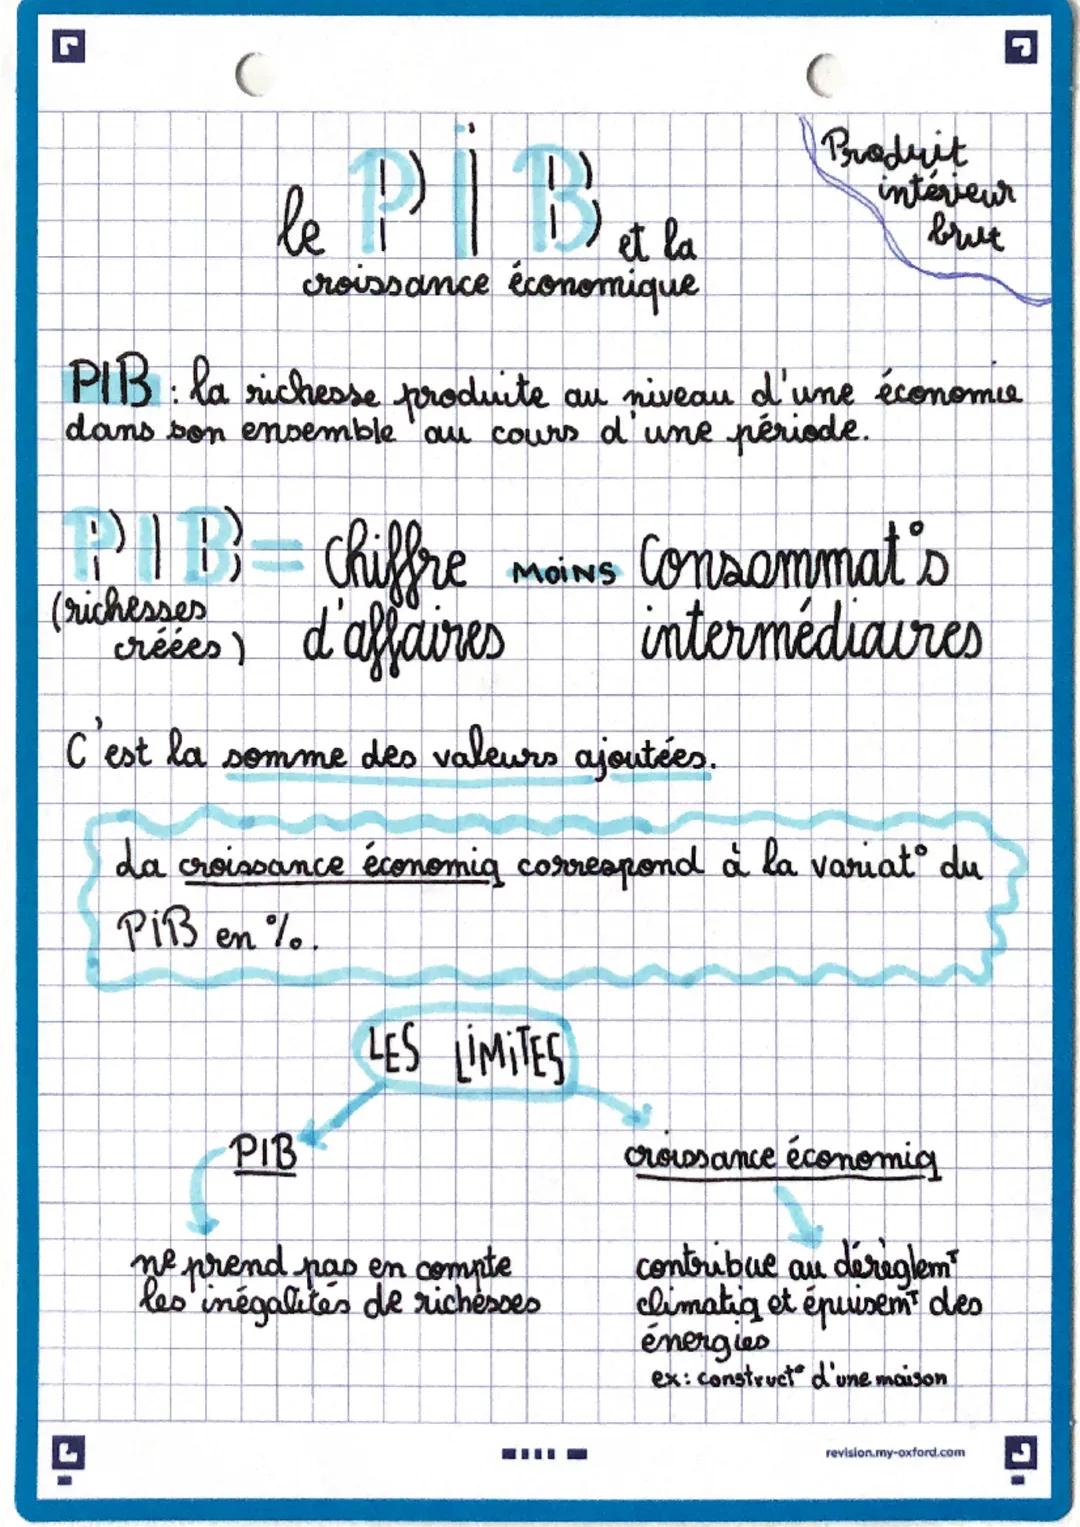 Produit
intérieur
brut
le PIB et la
croissance économique
PIB : la richesse produite au niveau d'une économie
dans son ensemble au cours d'une période.
PIB = Chiffre MOINS Consommat°s
(richesses créées) d'affaires intermédiaires
C'est la somme des valeurs ajoutées.
La croissance économiq correspond à la variat° du
PiB en %.
LES LiMiTES
PIB
croissance économiq
ne prend pas en compte
les inégalités de richesses
contribue au dérèglemᵀ
climatiq et épuisemᵀ des
énergies
ex: construct° d'une maison
revision.my-oxford.com